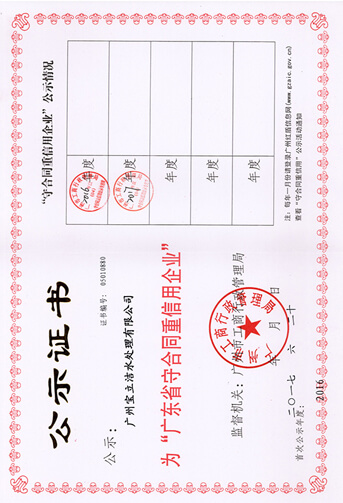 公示证书
证书编号：05010880
公示：
广州宝立洁水处理有限公司
为“广东省守合同重信用企业”
监督机关：广州市工商行政管理局
二〇一七年六月二十日
首次公示年度：2016
“守合同重信用企业”公示情况
2016年度
2017年度
年度
年度
年度
注：每年一月份请登录广州红盾信息网(www.gzaic.gov.cn)
查看“守合同重信用”公示活动通知